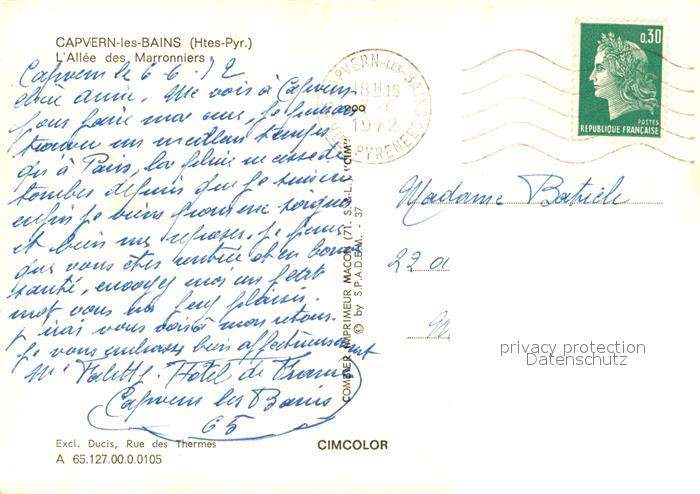 CAPVERN-les-BAINS (Htes-Pyr.)
L'Allée des Marronniers
Capvern le 6-6-72
chère amie, Me vois à Capvern
pour faire ma cure, je pensais
trouver un meilleur temps
qu'à Paris, la pluie ne cesse de
tomber depuis que je suis
enfin je viens pour me soigner
et bien me reposer, je pense
que vous êtes rentrée et en bonne
santé, envoyez moi un petit
mot vous me feriez plaisir.
j'irai vous voir à mon retour.
je vous embrasse bien affectueusement
Hôtel de France
Capvern les Bains
65
Excl. Ducis, Rue des Thermes
A 65.127.00.0.0105
CIMCOLOR
COMBIER IMPRIMEUR MACON 171. S.A.L.J. "CIM"
© by S.P.A.D.E.M. - 37
CAPVERN-LES-BAINS
18H15
1972
HTES PYRENEES
0,30
POSTES
REPUBLIQUE FRANÇAISE
Madame
22
privacy protection
Datenschutz